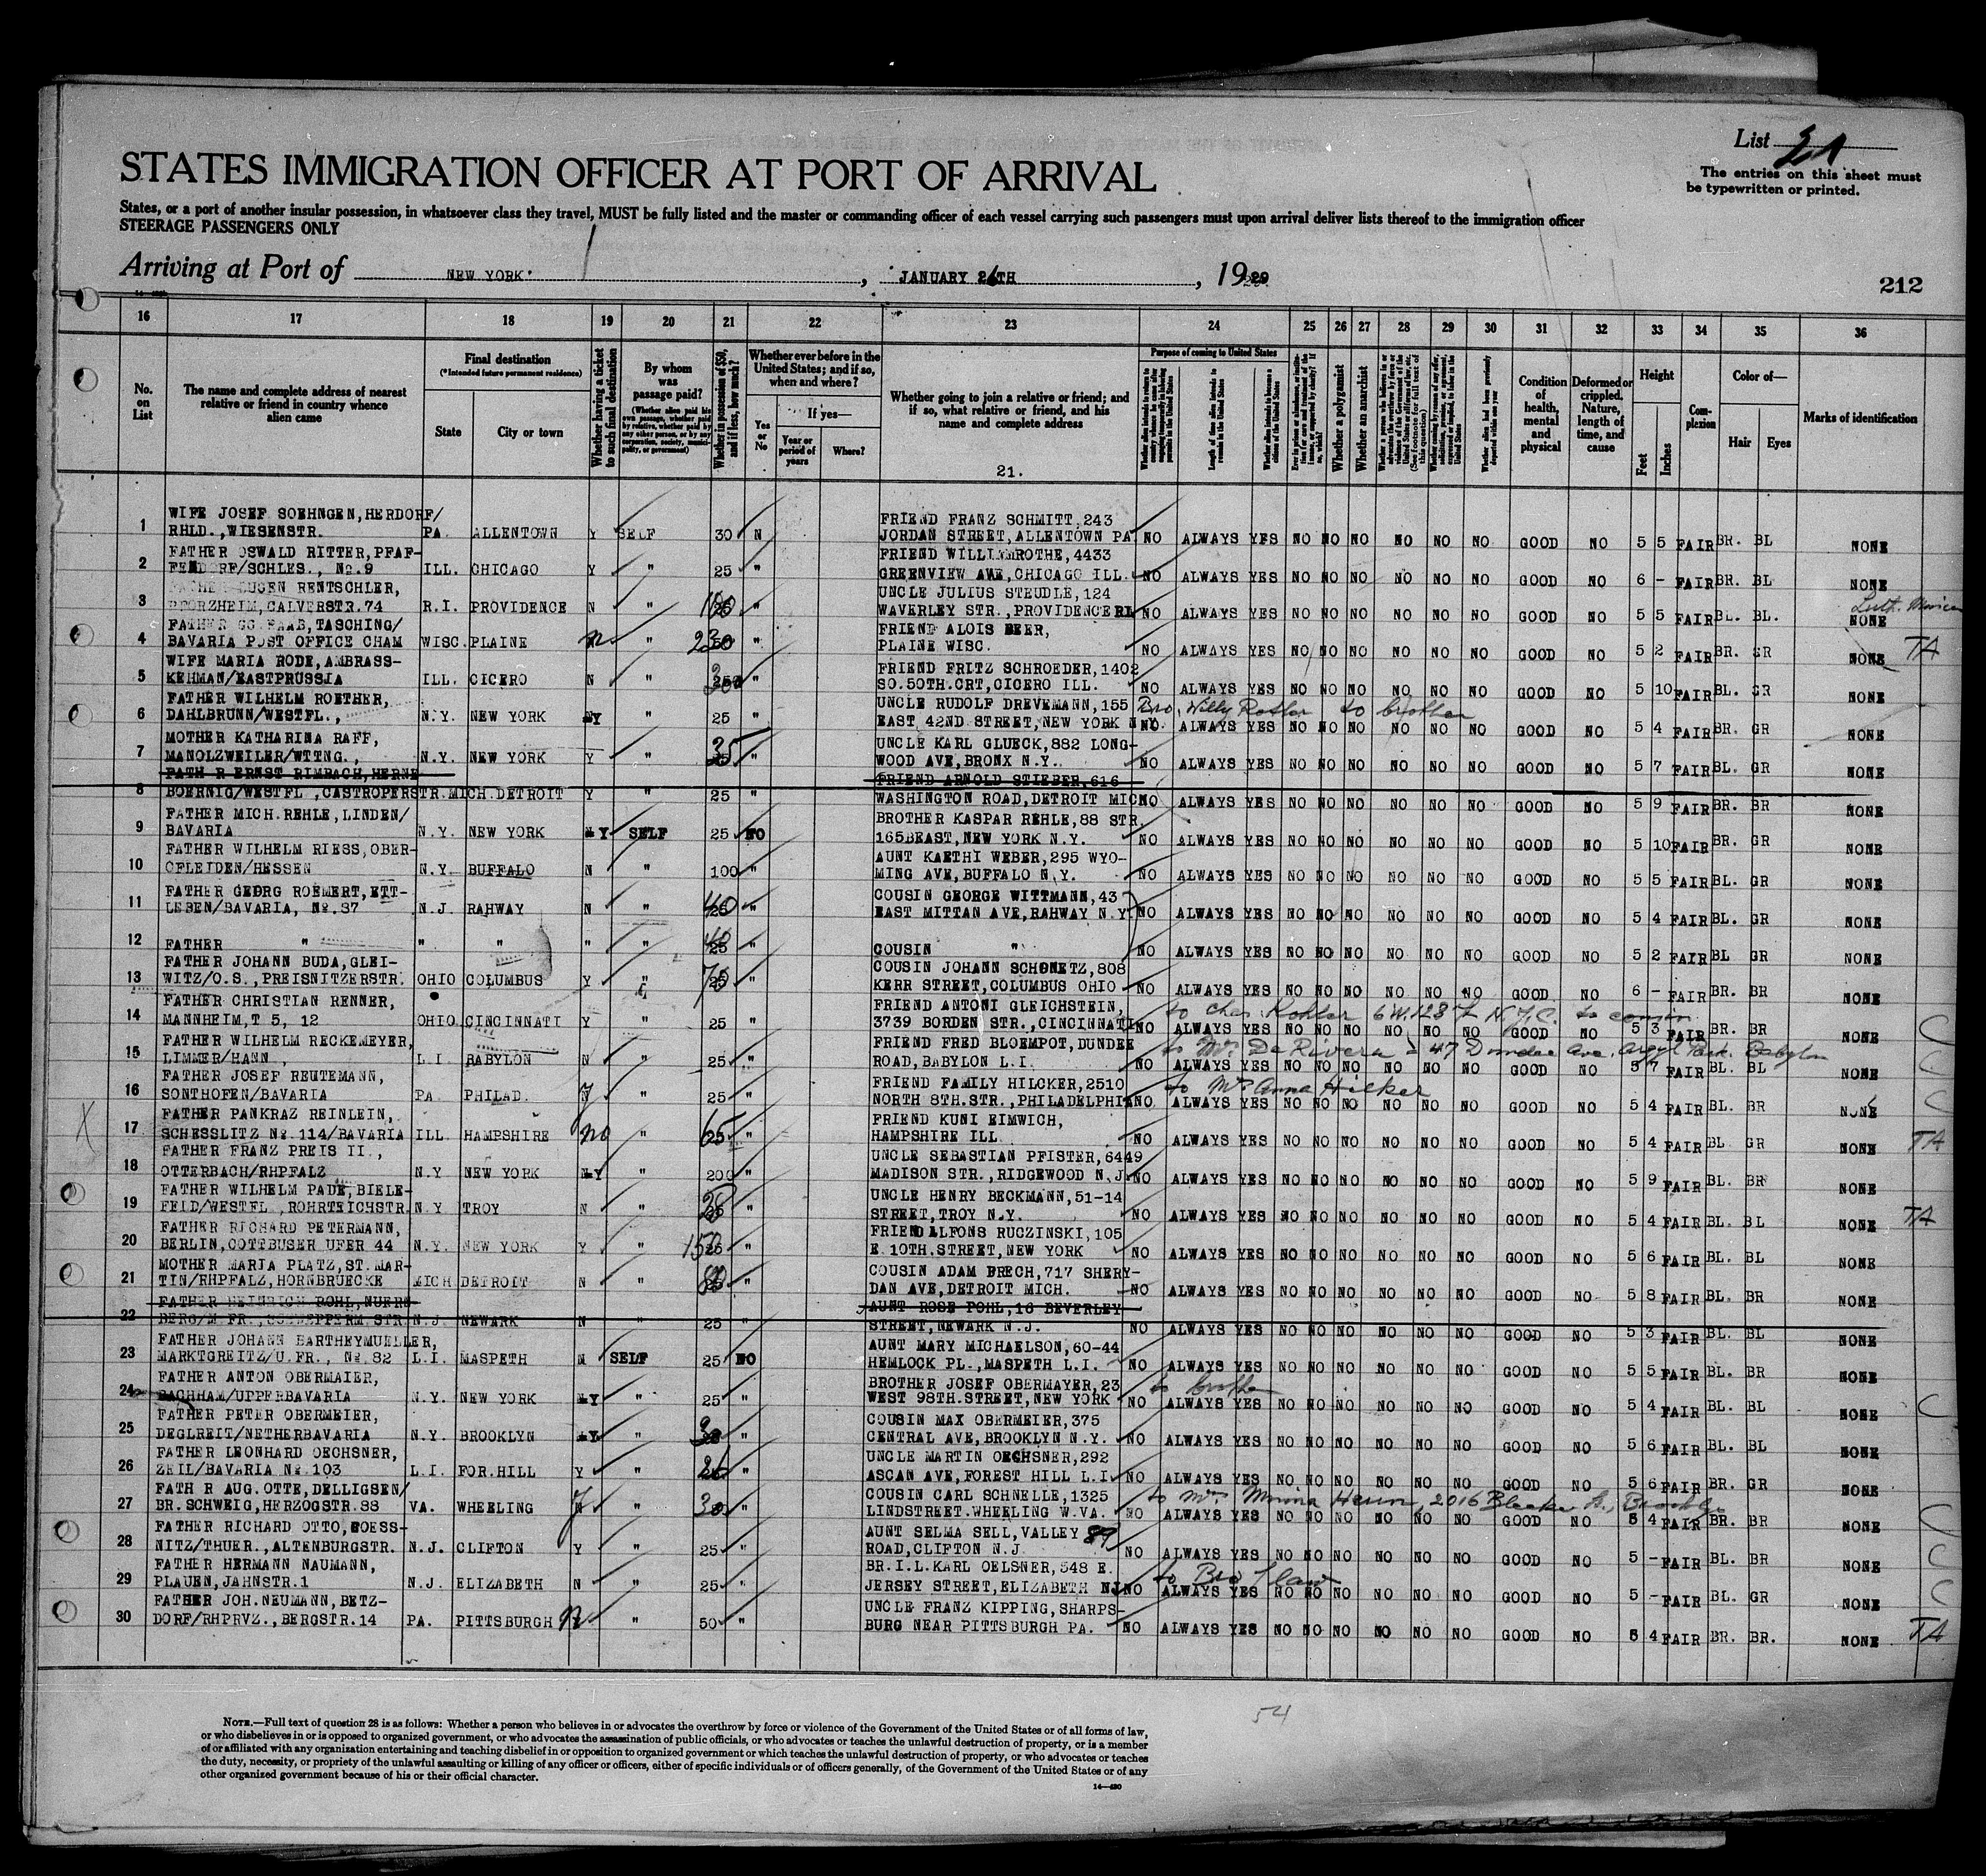 List 21
The entries on this sheet must
be typewritten or printed.
STATES IMMIGRATION OFFICER AT PORT OF ARRIVAL
States, or a port of another insular possession, in whatsoever class they travel, MUST be fully listed and the master or commanding officer of each vessel carrying such passengers must upon arrival deliver lists thereof to the immigration officer
STEERAGE PASSENGERS ONLY
Arriving at Port of NEW YORK, JANUARY 26TH, 19
212
16 17 18 19 20 21 22 23 24 25 26 27 28 29 30 31 32 33 34 35 36
No. on List
The name and complete address of nearest relative or friend in country whence alien came
Final destination
(*Intended future permanent residence)
State
City or town
Whether having a ticket to such final destination
By whom was passage paid?
Whether in possession of $50, and if less, how much?
Whether ever before in the United States; and if so, when and where?
Yes or No
If yes—
Year or period of years
Where?
Whether going to join a relative or friend; and if so, what relative or friend, and his name and complete address
21.
Purpose of coming to United States
Whether a polygamist
Whether an anarchist
Condition of health, mental and physical
Deformed or crippled. Nature, length of time, and cause
Height
Feet
Inches
Complexion
Color of—
Hair
Eyes
Marks of identification
1 WIFE JOSEF SOEHNGEN,HERDORF/ FRIEND FRANZ SCHMITT,243
RHLD.,WIESENSTR. PA. ALLENTOWN Y SELF 30 N JORDAN STREET,ALLENTOWN PA. NO ALWAYS YES NO NO NO NO NO NO GOOD NO 5 5 FAIR BR. BL NONE
2 FATHER OSWALD RITTER,PFAF- FRIEND WILLI ROTHE,4433
FENDORF/SCHLES., No.9 ILL. CHICAGO Y " 25 " GREENVIEW AVE,CHICAGO ILL. NO ALWAYS YES NO NO NO NO NO NO GOOD NO 6 - FAIR BR. BL NONE
3 EUGEN RENTSCHLER, UNCLE JULIUS STEUDLE,124
PFORZHEIM,CALVERSTR.74 R.I. PROVIDENCE N " " WAVERLEY STR.,PROVIDENCE RI NO ALWAYS YES NO NO NO NO NO NO GOOD NO 5 5 FAIR BL. BL. NONE
4 FATHER GG.RAAB,TASCHING/ FRIEND ALOIS BEER,
BAVARIA POST OFFICE CHAM WISC. PLAINE N " 230 " PLAINE WISC. NO ALWAYS YES NO NO NO NO NO NO GOOD NO 5 2 FAIR BR. GR NONE TA
5 WIFE MARIA RODE,AMBRASS- FRIEND FRITZ SCHROEDER,1402
KEHMAN/EASTPRUSSIA ILL. CICERO N " " SO.50TH.CRT,CICERO ILL. NO ALWAYS YES NO NO NO NO NO NO GOOD NO 5 10 FAIR BL. GR NONE
6 FATHER WILHELM ROETHER, UNCLE RUDOLF DREVEMANN,155 Bro. Willy to brother
DAHLBRUNN/WESTFL., N.Y. NEW YORK Y " 25 " EAST 42ND.STREET,NEW YORK N.Y. NO ALWAYS YES NO NO NO NO NO NO GOOD NO 5 4 FAIR BR. GR NONE
7 MOTHER KATHARINA RAFF, UNCLE KARL GLUECK,882 LONG-
MANOLZWEILER/WTTNG., N.Y. NEW YORK Y " 35 " WOOD AVE,BRONX N.Y. NO ALWAYS YES NO NO NO NO NO NO GOOD NO 5 7 FAIR BL. GR NONE
8 FATH R ERNST RIMBACH,HERNE FRIEND ARNOLD STIEBER,616
BOERNIG/WESTFL,CASTROPERSTR. MICH. DETROIT Y " 25 " WASHINGTON ROAD,DETROIT MICH NO ALWAYS YES NO NO NO NO NO NO GOOD NO 5 9 FAIR BR. BR NONE
9 FATHER MICH.REHLE,LINDEN/ BROTHER KASPAR REHLE,88 STR.
BAVARIA N.Y. NEW YORK Y SELF 25 NO 165 EAST,NEW YORK N.Y. NO ALWAYS YES NO NO NO NO NO NO GOOD NO 5 10 FAIR BR. GR NONE
10 FATHER WILHELM RIESS,OBER- AUNT KAETHI WEBER,295 WYO-
OFLEIDEN/HESSEN N.Y. BUFFALO N " 100 " MING AVE,BUFFALO N.Y. NO ALWAYS YES NO NO NO NO NO NO GOOD NO 5 5 FAIR BL. GR NONE
11 FATHER GEORG ROEMERT,ETT- COUSIN GEORGE WITTMANN,43
LEBEN/BAVARIA, No.87 N.J. RAHWAY N " 40 " EAST MITTAN AVE,RAHWAY N.Y. NO ALWAYS YES NO NO NO NO NO NO GOOD NO 5 4 FAIR BL. GR NONE
12 FATHER " " " " " 40 " COUSIN " NO ALWAYS YES NO NO NO NO NO NO GOOD NO 5 2 FAIR BL GR NONE
13 FATHER JOHANN BUDA,GLEI- COUSIN JOHANN SCHONETZ,808
WITZ/O.S.,PREISNITZERSTR. OHIO COLUMBUS Y " 70 " KERR STREET,COLUMBUS OHIO NO ALWAYS YES NO NO NO NO NO NO GOOD NO 6 - FAIR BR. BR NONE
14 FATHER CHRISTIAN RENNER, FRIEND ANTONI GLEICHSTEIN, to Chas. Kohler 6 W. 128 St N.Y.C. to cousin
MANNHEIM,T 5, 12 OHIO CINCINNATI Y " 25 " 3739 BORDEN STR.,CINCINNATI NO ALWAYS YES NO NO NO NO NO NO GOOD NO 5 3 FAIR BR. BR NONE C
15 FATHER WILHELM RECKEMEYER, FRIEND FRED BLOEMPOT,DUNDEE to Mr. De Rivera 47 Dundee Ave. Argyl Park. Babylon
LIMMER/HANN., L.I. BABYLON N " 25 " ROAD,BABYLON L.I. NO ALWAYS YES NO NO NO NO NO NO GOOD NO 5 7 FAIR BL. BL NONE C
16 FATHER JOSEF REUTEMANN, FRIEND FAMILY HILCKER,2510 to Mrs Anna Hilker
SONTHOFEN/BAVARIA PA. PHILAD. Y " 25 " NORTH 8TH.STR.,PHILADELPHIA NO ALWAYS YES NO NO NO NO NO NO GOOD NO 5 4 FAIR BL. BR NONE C
17 FATHER PANKRAZ REINLEIN, FRIEND KUNI EIMWICH,
SCHESSLITZ No.114/BAVARIA ILL. HAMPSHIRE no " 65 " HAMPSHIRE ILL. NO ALWAYS YES NO NO NO NO NO NO GOOD NO 5 4 FAIR BL GR NONE TA
18 FATHER FRANZ PREIS II., UNCLE SEBASTIAN PFISTER,6449
OTTERBACH/RHPFALZ N.Y NEW YORK Y " 200 " MADISON STR.,RIDGEWOOD N.J. NO ALWAYS YES NO NO NO NO NO NO GOOD NO 5 9 FAIR BL. BR NONE
19 FATHER WILHELM PADE,BIELE- UNCLE HENRY BECKMANN,51-14
FELD/WESTFL.,ROHRTEICHSTR. N.Y TROY N " " STREET,TROY N.Y. NO ALWAYS YES NO NO NO NO NO NO GOOD NO 5 4 FAIR BL. BL NONE TA
20 FATHER RICHARD PETERMANN, FRIEND ALFONS RUCZINSKI,105
BERLIN,COTTBUSER UFER 44 N.Y. NEW YORK Y " 150 " E.10TH.STREET,NEW YORK NO ALWAYS YES NO NO NO NO NO NO GOOD NO 5 6 FAIR BL. BL NONE
21 MOTHER MARIA PLATZ,ST.MAR- COUSIN ADAM BRECH,717 SHERY-
TIN/RHPFALZ,HORNBRUECKE MICH DETROIT N " " DAN AVE,DETROIT MICH. NO ALWAYS YES NO NO NO NO NO NO GOOD NO 5 8 FAIR BL. BR NONE
22 FATHER HEINRICH POHL,NUERN- AUNT ROSE POHL,16 BEVERLEY
BERG/M FR., STR N.J. NEWARK N " 25 " STREET,NEWARK N.J. NO ALWAYS YES NO NO NO NO NO NO GOOD NO 5 3 FAIR BL. BL NONE
23 FATHER JOHANN BARTHEYMUELLER, AUNT MARY MICHAELSON,60-44
MARKTGREITZ/U.FR., No.82 L.I. MASPETH N SELF 25 NO HEMLOCK PL.,MASPETH L.I. NO ALWAYS YES NO NO NO NO NO NO GOOD NO 5 5 FAIR BL. BR NONE
24 FATHER ANTON OBERMAIER, BROTHER JOSEF OBERMAYER,23 to brother
BACHHAM/UPPERBAVARIA N.Y. NEW YORK Y " 25 " WEST 98TH.STREET,NEW YORK NO ALWAYS YES NO NO NO NO NO NO GOOD NO 5 4 FAIR BL. BL NONE C
25 FATHER PETER OBERMEIER, COUSIN MAX OBERMEIER,375
DEGLREIT/NETHERBAVARIA N.Y. BROOKLYN Y " 30 " CENTRAL AVE,BROOKLYN N.Y. NO ALWAYS YES NO NO NO NO NO NO GOOD NO 5 6 FAIR BL. BL NONE
26 FATHER LEONHARD OECHSNER, UNCLE MARTIN OECHSNER,292
ZEIL/BAVARIA No.103 L.I. FOR.HILL Y " 26 " ASCAN AVE,FOREST HILL L.I. NO ALWAYS YES NO NO NO NO NO NO GOOD NO 5 6 FAIR BR. GR NONE
27 FATH R AUG.OTTE,DELLIGSEN/ COUSIN CARL SCHNELLE,1325 to Mrs. Minna 2016 Bleeker St., Brooklyn
BR.SCHWEIG,HERZOGSTR.88 VA. WHEELING Y " 30 " LINDSTREET.WHEELING W.VA. NO ALWAYS YES NO NO NO NO NO NO GOOD NO 5 4 FAIR BR. BR NONE C
28 FATHER RICHARD OTTO,GOESS- AUNT SELMA SELL,VALLEY 89
NITZ/THUER.,ALTENBURGSTR. N.J. CLIFTON Y " 25 " ROAD,CLIFTON N.J NO ALWAYS YES NO NO NO NO NO NO GOOD NO 5 - FAIR BL. BR NONE C
29 FATHER HERMANN NAUMANN, BR.I.L.KARL OELSNER,548 E. to Bro I law
PLAUEN,JAHNSTR.1 N.J. ELIZABETH N " 25 " JERSEY STREET,ELIZABETH NJ NO ALWAYS YES NO NO NO NO NO NO GOOD NO 5 - FAIR BL. GR NONE C
30 FATHER JOH.NEUMANN,BETZ- UNCLE FRANZ KIPPING,SHARPS-
DORF/RHPRVZ.,BERGSTR.14 PA. PITTSBURGH N " 50 " BURG NEAR PITTSBURGH PA. NO ALWAYS YES NO NO NO NO NO NO GOOD NO 5 4 FAIR BR. BR. NONE TA
54
NOTE.—Full text of question 28 is as follows: Whether a person who believes in or advocates the overthrow by force or violence of the Government of the United States or of all forms of law,
or who disbelieves in or is opposed to organized government, or who advocates the assassination of public officials, or who advocates or teaches the unlawful destruction of property, or is a member
of or affiliated with any organization entertaining and teaching disbelief in or opposition to organized government or which teaches the unlawful destruction of property, or who advocates or teaches
the duty, necessity, or propriety of the unlawful assaulting or killing of any officer or officers, either of specific individuals or of officers generally, of the Government of the United States or of any
other organized government because of his or their official character.
14—480